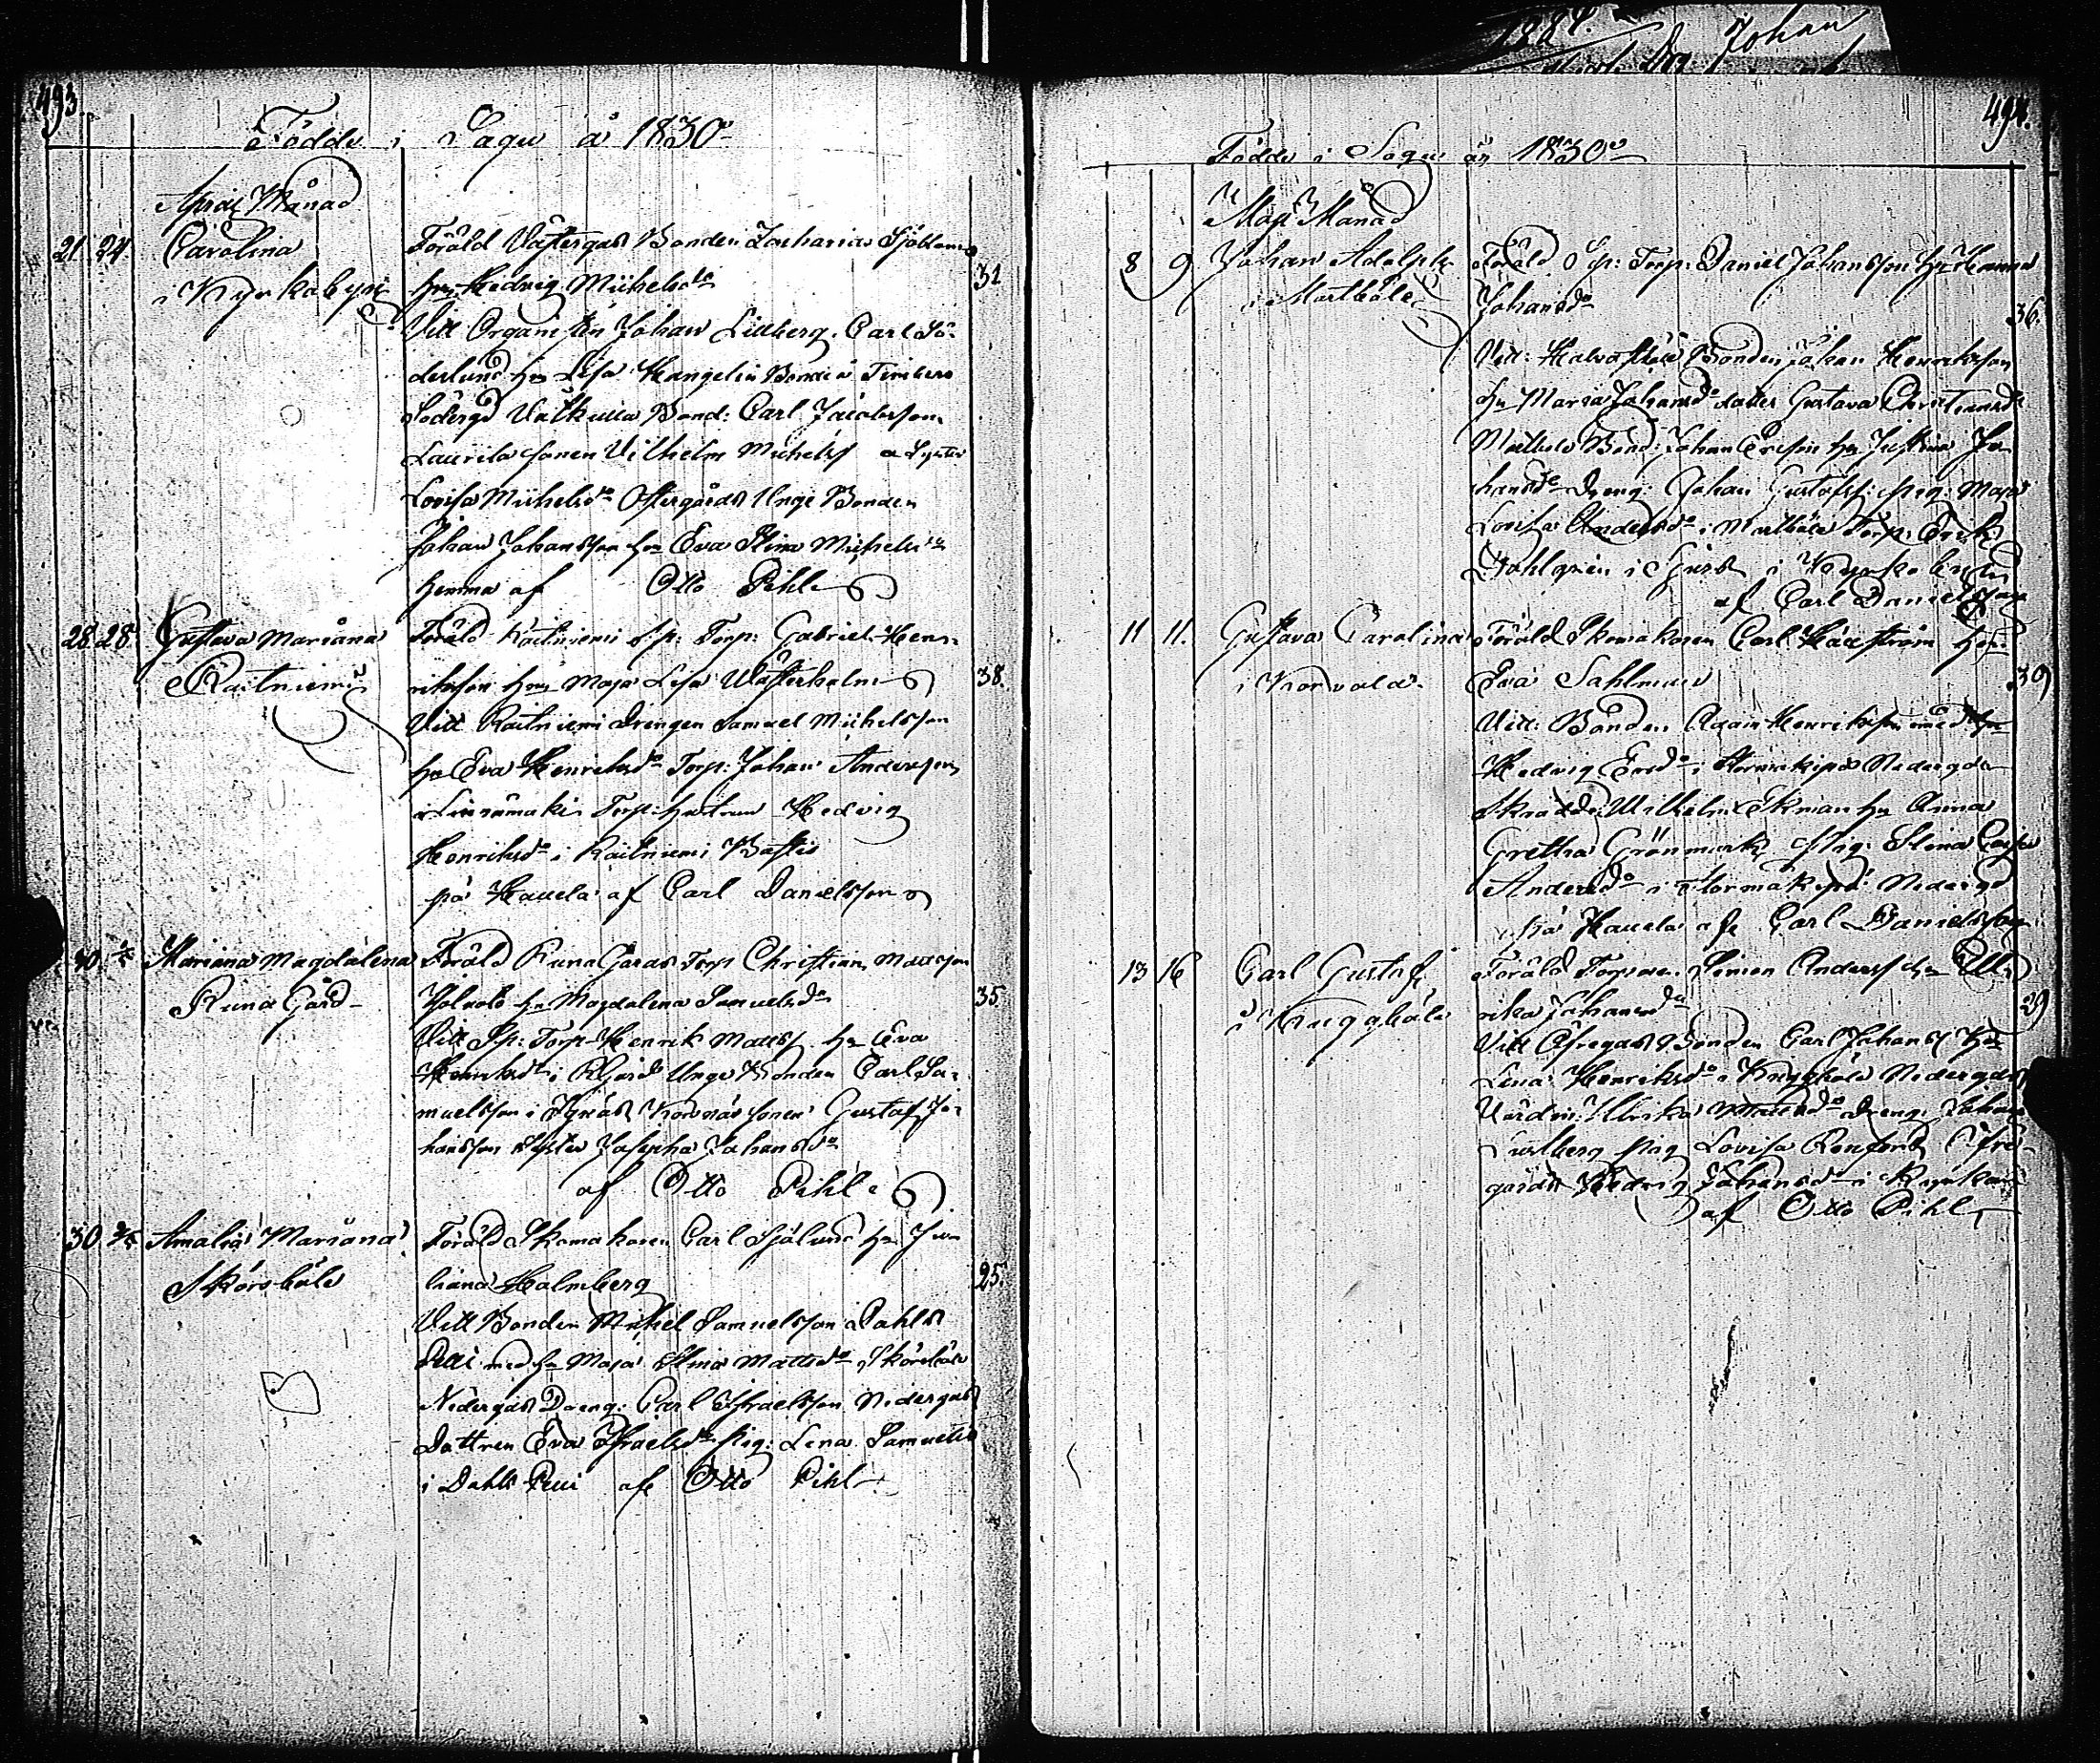 1884.
Johan
493.
Födde i Sagu å 1830
April Månad
21. 24. Carolina
i Kyrkobyn
Föräld Västergårds Bonden Zacharias Sjöblom
hu Hedvig Michelsdr 31
Vitt Organisten Johan Lillberg. Carl Sö-
derlund hu Lisa Bonden
Södergd Valkulla Bond: Carl Jacobsson
Laurila sonen Vilhelm Michelss a Syster
Lovisa Michelsdr Östergårds Unge Bonden
Johan Johansson hu Eva Stina Michelsdr
hemma af Otto Pihl
28. 28. Gustava Mariana
Raitniemi
Föräld Raitniemi Sp: Torp: Gabriel Hen-
riksson hu Maja Lisa Wästerholm 38.
Vitt Raitniemi Drengen Samuel Michelsson
hu Eva Henriksdr Torp: Johan Andersson
i Linnamäki Torp. hustrun Hedvig
Henriksdr i Raitniemi
på Havela af Carl Danielsson
30 Mariana Magdalena
Runa Gård
Föräld Runa Gårds Torp Christian Mattsson
hu Magdalena Samuelsdr 35
Vitt Sp: Torp Henrik Mattss hu Eva
Henriksdr i Unge Bonden Carl Sa-
muelsson i Kornäs sonen Gustaf Jo-
hansson Syster Josepha Johansdr
af Otto Pihl
30 Amalia Mariana
Skörsböle
Föräld Skomakaren Carl Sjölund hu Ju-
liana Holmberg 25.
Vitt Bonden Michel Samuelsson Dahls
Pelli med hu Maja Stina Mattsdr Skörsböle
Nedergårds Dreng: Carl Israelsson Nedergårds
Dottren Eva Israelsdr Pig: Lena Samuelsd
i Dahls Pelli af Otto Pihl
494.
Födde i Sagu år 1830
Maji Månad
8 9 Johan Adolph
i Martböle
Föräld Sp: Torp: Daniel Johansson hu Hanna
Johansdr 36.
Vitt: Bonden Johan Henriksson
hu Maria Johansdr dotter Gustava Christiansdr
Bond: Johan Ericsson hu Justina Jo-
hansdr Dreng: Johan Gustafss: Pig: Maja
Lovisa Andersdr i Martböle Torp: Erik
Dahlgren i i Kyrkobyn
af Carl Danielsson
11 11. Gustava Carolina
i Korvala
Föräld Skomakaren Carl Häxström hu
Eva Sahlman 39
Vitt: Bonden Adam Henriksson med hu
Hedvig Ersdr i Stormakipää Nedergård
Skräddar Wilhelm Ekman hu Anna
Gretha Grönmark Pig: Stina Cajsa
Andersdr i Stormakipää Nedergd
på Havela af Carl Danielsson
13 16 Carl Gustaf
i Knuggböle
Föräld Torparen Simon Anderss hu Ull-
rika Johansdr 29
Vitt Öfregårds Bonden Carl Johanss hu
Lena Henriksdr i Knuggböle Nedergårds
Värdin: Ulrika Mattsdr Dreng: Johan
Pig Lovisa Renfors Öfre-
gårds Hedvig Johansd i
af Otto Pihl